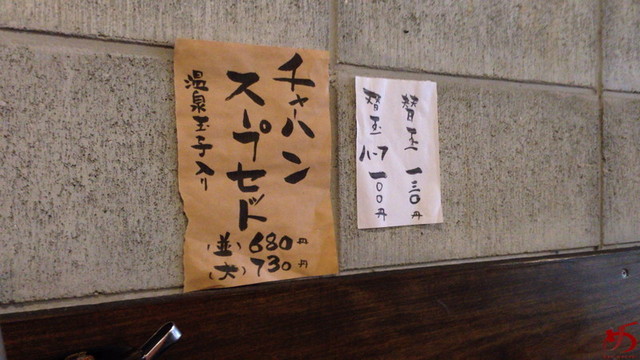 チャーハン
スープセット
温泉玉子入り
(並) 680円
(大) 730円
替玉 一三〇円
替玉ハーフ 一〇〇円